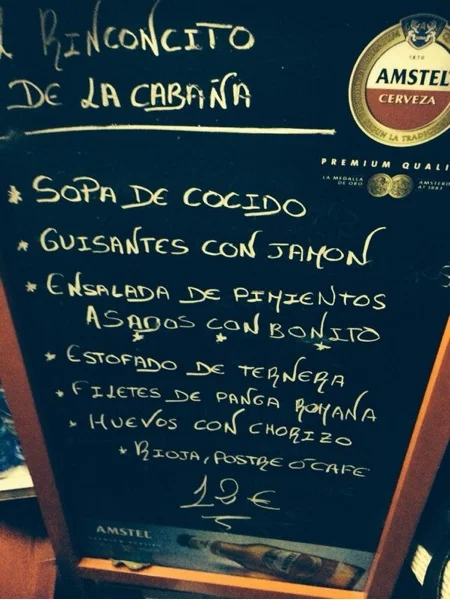 RINCONCITO
DE LA CABAÑA
1870
AMSTEL
CERVEZA
SEGÚN LA TRADICIÓN
PREMIUM QUALI
LA MEDALLA
DE ORO
AMSTER
Aº 1883
* SOPA DE COCIDO
* GUISANTES CON JAMON
* ENSALADA DE PIMIENTOS
ASADOS CON BONITO
* ESTOFADO DE TERNERA
* FILETES DE PANGA ROMANA
* HUEVOS CON CHORIZO
* RIOJA, POSTRE Ó CAFE
12 €
AMSTEL